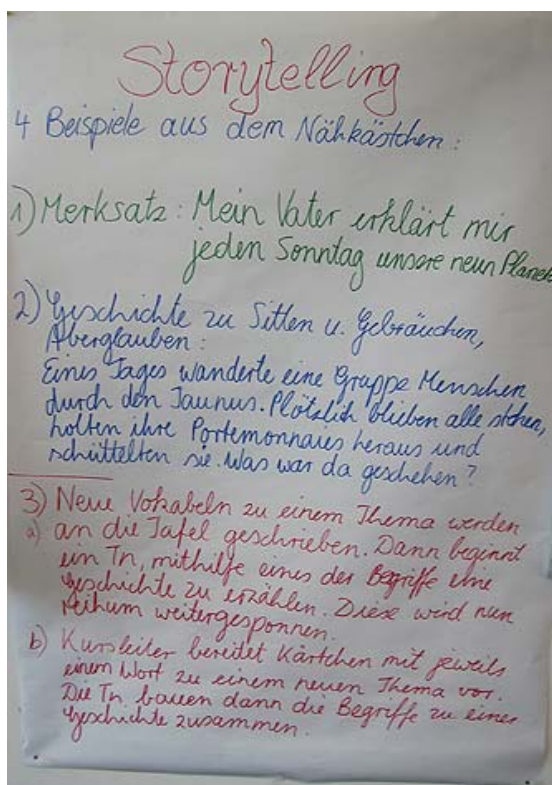 Storytelling
4 Beispiele aus dem Nähkästchen:
1) Merksatz: Mein Vater erklärt mir
jeden Sonntag unsere neun Planete
2) Geschichte zu Sitten u. Gebräuchen,
Aberglauben:
Eines Tages wanderte eine Gruppe Menschen
durch den Taunus. Plötzlich blieben alle stehen,
holten ihre Portemonnaies heraus und
schüttelten sie. Was war da geschehen?
3) Neue Vokabeln zu einem Thema werden
a) an die Tafel geschrieben. Dann beginnt
ein Tn, mithilfe eines der Begriffe eine
Geschichte zu erzählen. Diese wird nun
reihum weitergesponnen.
b) Kursleiter bereitet Kärtchen mit jeweils
einem Wort zu einem neuen Thema vor.
Die Tn. bauen dann die Begriffe zu einer
Geschichte zusammen.